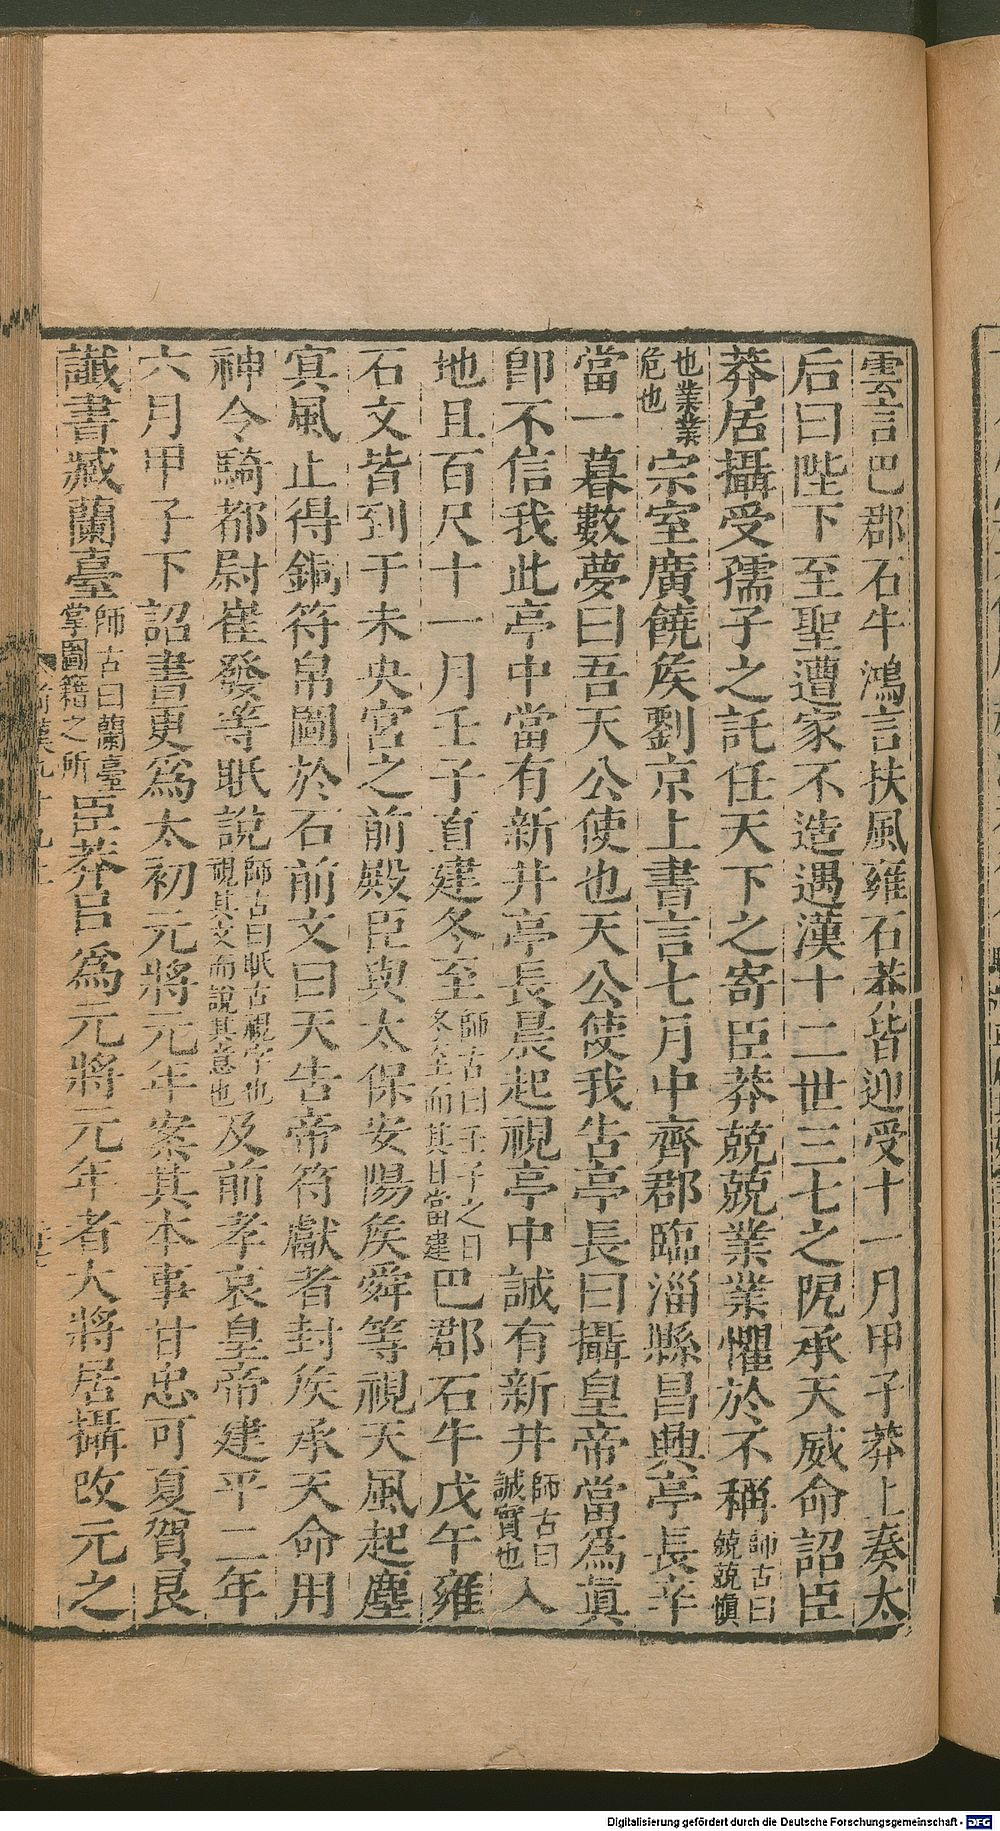 雲言巴郡石牛鴻言扶風雍石莽皆迎受十一月甲子莽上奏太
后曰陛下至聖遭家不造遇漢十二世三七之阸承天威命詔臣
莽居攝受孺子之託任天下之寄臣莽兢兢業業懼於不稱師古曰兢兢愼
也業業危也宗室廣饒侯劉京上書言七月中齊郡臨淄縣昌興亭長辛
當一暮數夢曰吾天公使也天公使我告亭長曰攝皇帝當爲眞
卽不信我此亭中當有新井亭長晨起視亭中誠有新井師古曰誠實也入
地且百尺十一月壬子直建冬至師古曰壬子之日冬至而其日當建巴郡石牛戊午雍
石文皆到于未央宮之前殿臣與太保安陽侯舜等視天風起塵
冥風止得銅符帛圖於石前文曰天告帝符獻者封侯承天命用
神令騎都尉崔發等眂說師古曰眂古視字也視其文而說其意也及前孝哀皇帝建平二年
六月甲子下詔書更爲太初元將元年案其本事甘忠可夏賀良
讖書臧蘭臺師古曰蘭臺掌圖籍之所臣莽㠯爲元將元年者大將居攝改元之
前漢九十九上
Digitalisierung gefördert durch die Deutsche Forschungsgemeinschaft - DFG